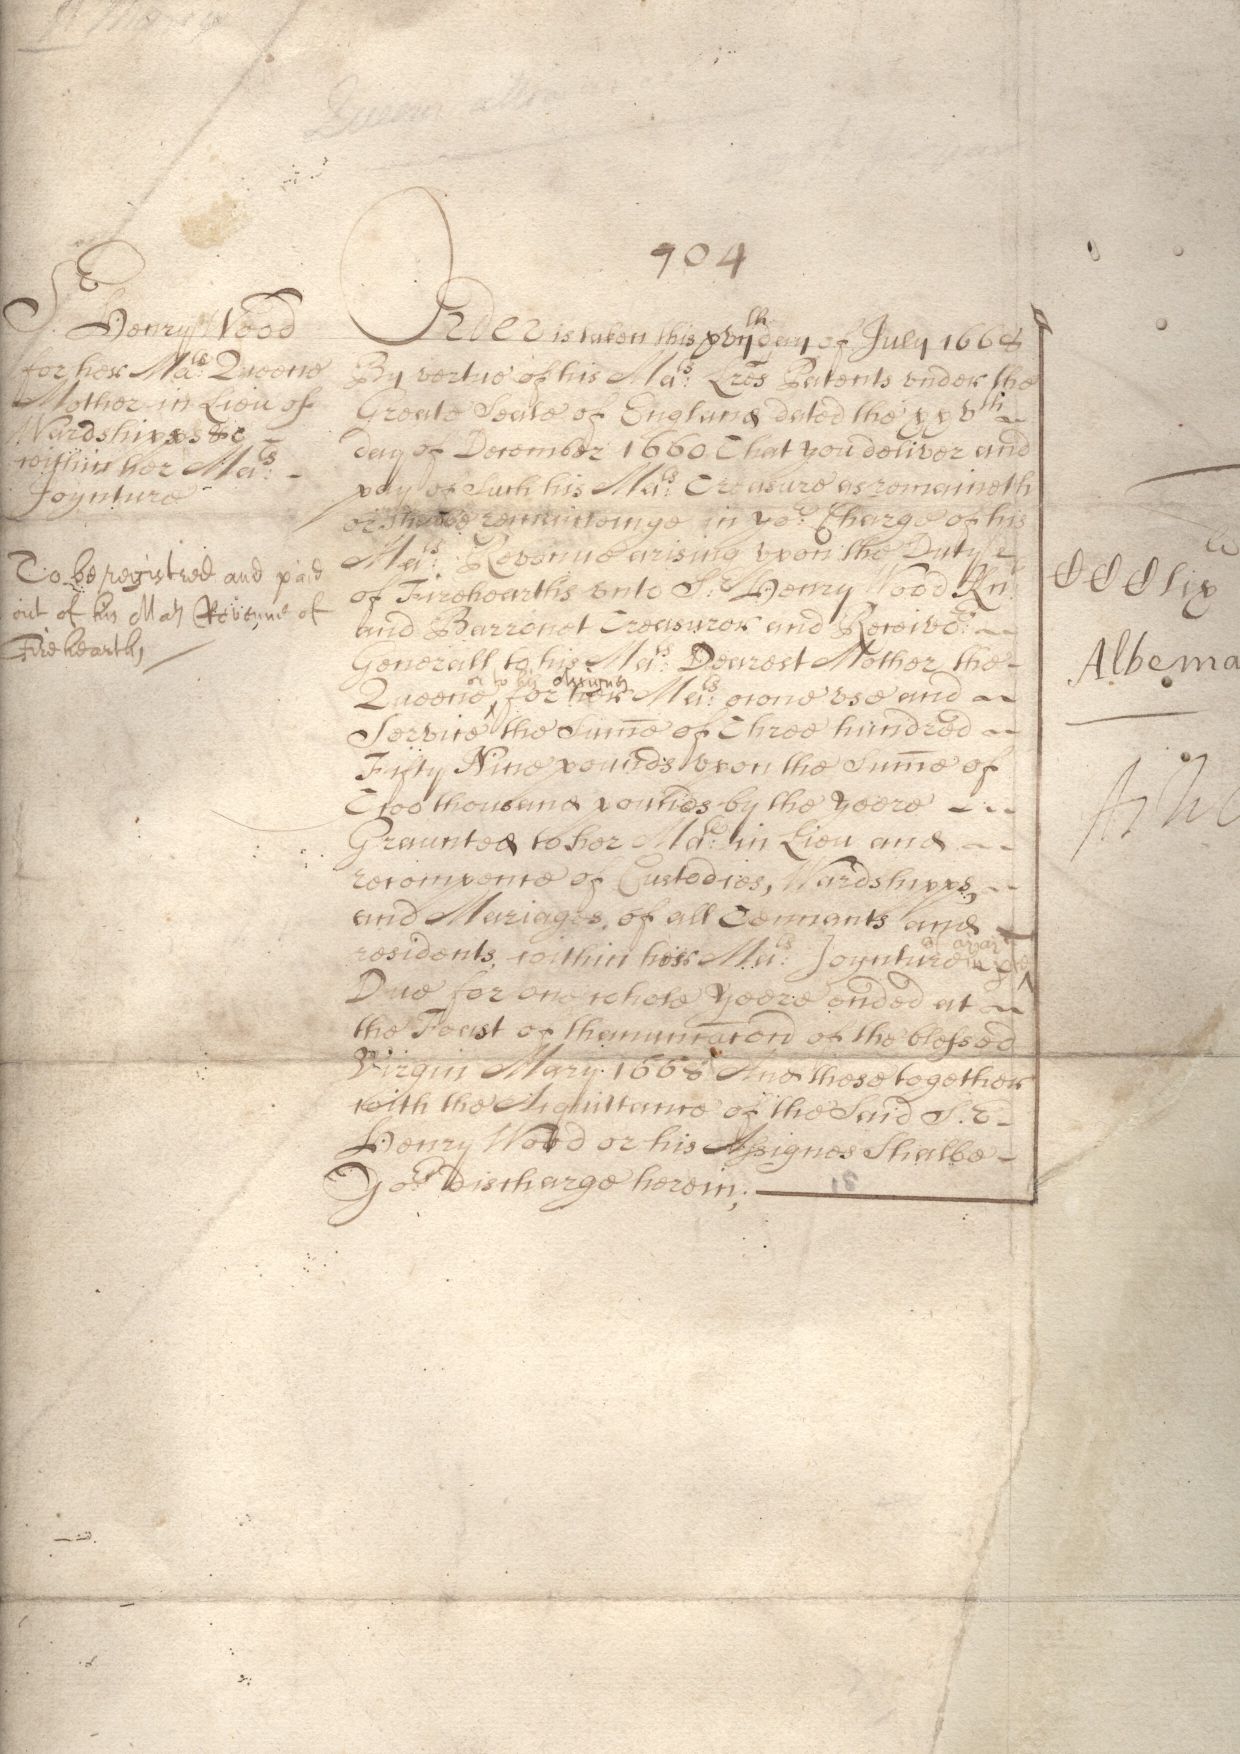 904
Sr
Henry Wood
for her Mats Queene
Mother in Lieu of
Wardshipps &c
within her Mats
Joynture
To be registred and paid
out of his Mats Revenue of
Firehearths
Order is taken this xvijth day of July 1668
By vertue of his Mats Lres Patents vnder the
Greate Seale of England dated the xxvth
day of December 1660 That you deliver and
pay of Such his Mats Treasure as remaineth
or Shalbe remaineinge in yor Charge of his
Mats Revenue arising vpon the Duty
of Firehearths vnto Sr Henry Wood Knt
and Barronet Treasuror and Receivor
Generall to his Mats Dearest Mother the
Queene, or to his assignes for her Mats owne vse and
Service the Summe of Three hundred
Fifty Nine pounds vpon the Summe of
Two thousand pounds by the yeere
Graunted to her Mats in Lieu and
recompence of Custodies, Wardshipps,
and Mariages, of all Tennants and
residents, within her Mats Joynture
Due for one whole yeere ended at
the Feast of thannunciacon of the blessed
Virgin Mary 1668 And these together
with the Acquittance of the Said Sr
Henry Wood or his Assignes Shalbe
Yor Discharge herein;
CCClix
Albema